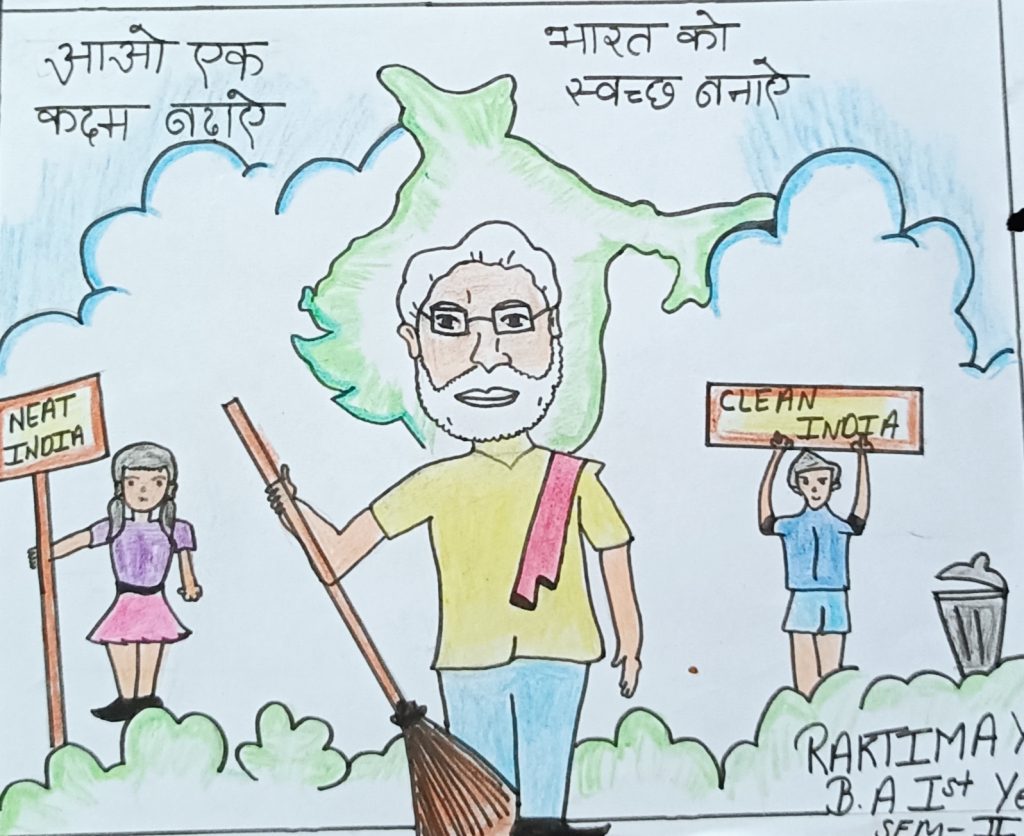 आओ एक
कदम बढाऐ
भारत को
स्वच्छ बनाऐ
NEAT
INDIA
CLEAN
INDIA
RAKTIMA
B.A Ist Ye
SEM-II